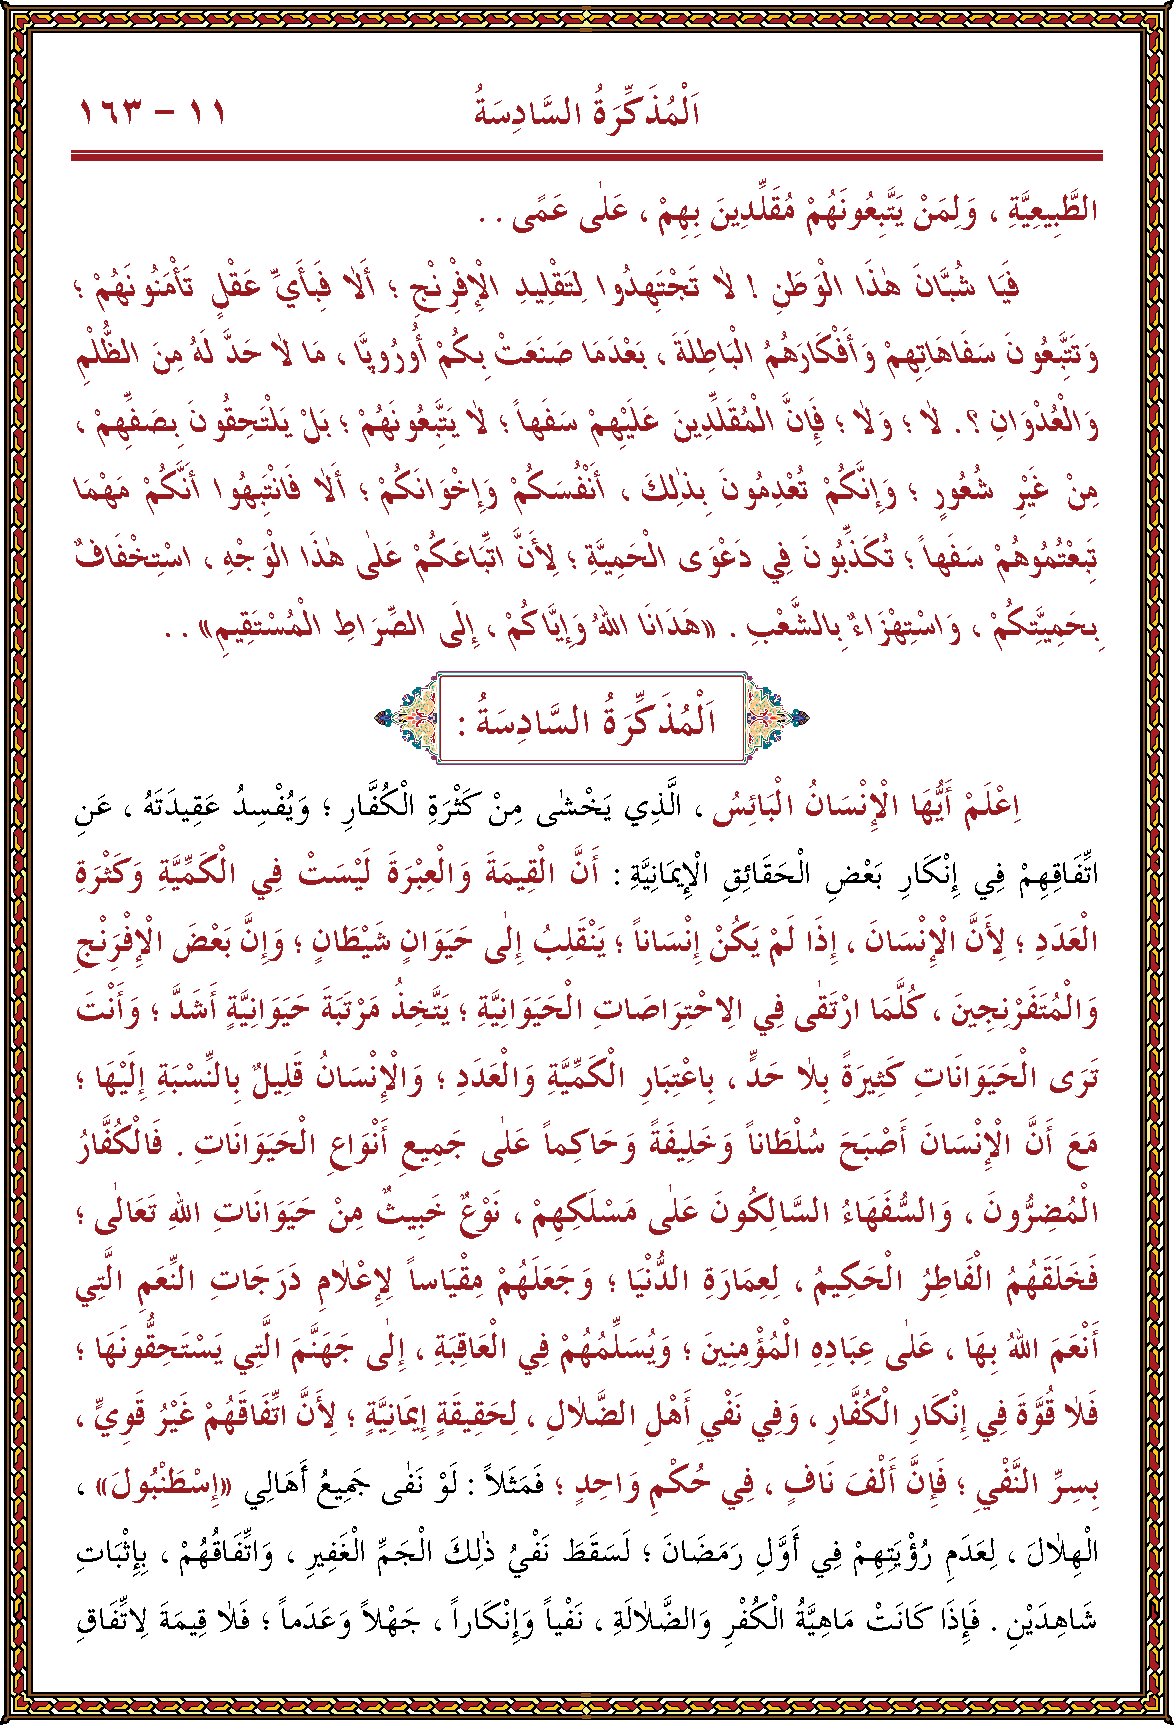 اَلْمُذَكِّرَةُ السَّادِسَةُ ١١ - ١٦٣
الطَّبِيعِيَّةِ ، وَلِمَنْ يَتَّبِعُونَهُمْ مُقَلِّدِينَ بِهِمْ ، عَلٰى عَمًى . .
فَيَا شُبَّانَ هٰذَا الْوَطَنِ ! لاٰ تَجْتَهِدُوا لِتَقْلِيدِ الْإِفْرِنْجِ ؛ أَلاٰ فَبِأَيِّ عَقْلٍ تَأْمَنُونَهُمْ ؛
وَتَتَّبِعُونَ سَفَاهَاتِهِمْ وَأَفْكَارَهُمُ الْبَاطِلَةَ ، بَعْدَمَا صَنَعَتْ بِكُمْ أُورُوپَّا ، مَا لاٰ حَدَّ لَهُ مِنَ الظُّلْمِ
وَالْعُدْوَانِ ؟. لاٰ ؛ وَلاٰ ؛ فَإِنَّ الْمُقَلِّدِينَ عَلَيْهِمْ سَفَهاً ؛ لاٰ يَتَّبِعُونَهُمْ ؛ بَلْ يَلْتَحِقُونَ بِصَفِّهِمْ ،
مِنْ غَيْرِ شُعُورٍ ؛ وَإِنَّكُمْ تُعْدِمُونَ بِذٰلِكَ ، أَنْفُسَكُمْ وَإِخْوَانَكُمْ ؛ أَلاٰ فَانْتَبِهُوا أَنَّكُمْ مَهْمَا
تَبِعْتُمُوهُمْ سَفَهاً ؛ تُكَذِّبُونَ فِي دَعْوَى الْحَمِيَّةِ ؛ لِأَنَّ اتِّبَاعَكُمْ عَلٰى هٰذَا الْوَجْهِ ، اسْتِخْفَافٌ
بِحَمِيَّتِكُمْ ، وَاسْتِهْزَاءٌ بِالشَّعْبِ . «هَدَانَا اللهُ وَإِيَّاكُمْ ، إِلَى الصِّرَاطِ الْمُسْتَقِيمِ» . .
اَلْمُذَكِّرَةُ السَّادِسَةُ :
اِعْلَمْ أَيُّهَا الْإِنْسَانُ الْبَائِسُ ، الَّذِي يَخْشٰى مِنْ كَثْرَةِ الْكُفَّارِ ؛ وَيُفْسِدُ عَقِيدَتَهُ ، عَنِ
اتِّفَاقِهِمْ فِي إِنْكَارِ بَعْضِ الْحَقَائِقِ الْإِيمَانِيَّةِ : أَنَّ الْقِيمَةَ وَالْعِبْرَةَ لَيْسَتْ فِي الْكَمِّيَّةِ وَكَثْرَةِ
الْعَدَدِ ؛ لِأَنَّ الْإِنْسَانَ ، إِذَا لَمْ يَكُنْ إِنْسَاناً ؛ يَنْقَلِبُ إِلٰى حَيَوَانٍ شَيْطَانٍ ؛ وَإِنَّ بَعْضَ الْإِفْرَنْجِ
وَالْمُتَفَرْنِجِينَ ، كُلَّمَا ارْتَقٰى فِي الاِحْتِرَاصَاتِ الْحَيَوَانِيَّةِ ؛ يَتَّخِذُ مَرْتَبَةَ حَيَوَانِيَّةٍ أَشَدَّ ؛ وَأَنْتَ
تَرَى الْحَيَوَانَاتِ كَثِيرَةً بِلاٰ حَدٍّ ، بِاعْتِبَارِ الْكَمِّيَّةِ وَالْعَدَدِ ؛ وَالْإِنْسَانُ قَلِيلٌ بِالنِّسْبَةِ إِلَيْهَا ؛
مَعَ أَنَّ الْإِنْسَانَ أَصْبَحَ سُلْطَاناً وَخَلِيفَةً وَحَاكِماً عَلٰى جَمِيعِ أَنْوَاعِ الْحَيَوَانَاتِ . فَالْكُفَّارُ
الْمُضِرُّونَ ، وَالسُّفَهَاءُ السَّالِكُونَ عَلٰى مَسْلَكِهِمْ ، نَوْعٌ خَبِيثٌ مِنْ حَيَوَانَاتِ اللهِ تَعَالٰى ؛
فَخَلَقَهُمُ الْفَاطِرُ الْحَكِيمُ ، لِعِمَارَةِ الدُّنْيَا ؛ وَجَعَلَهُمْ مِقْيَاساً لِإِعْلاٰمِ دَرَجَاتِ النِّعَمِ الَّتِي
أَنْعَمَ اللهُ بِهَا ، عَلٰى عِبَادِهِ الْمُؤْمِنِينَ ؛ وَيُسَلِّمُهُمْ فِي الْعَاقِبَةِ ، إِلٰى جَهَنَّمَ الَّتِي يَسْتَحِقُّونَهَا ؛
فَلاٰ قُوَّةَ فِي إِنْكَارِ الْكُفَّارِ ، وَفِي نَفْيِ أَهْلِ الضَّلاٰلِ ، لِحَقِيقَةٍ إِيمَانِيَّةٍ ؛ لِأَنَّ اتِّفَاقَهُمْ غَيْرُ قَوِيٍّ ،
بِسِرِّ النَّفْيِ ؛ فَإِنَّ أَلْفَ نَافٍ ، فِي حُكْمِ وَاحِدٍ ؛ فَمَثَلاً : لَوْ نَفٰى جَمِيعُ أَهَالِي «إِسْطَنْبُولَ» ،
الْهِلاٰلَ ، لِعَدَمِ رُؤْيَتِهِمْ فِي أَوَّلِ رَمَضَانَ ؛ لَسَقَطَ نَفْيُ ذٰلِكَ الْجَمِّ الْغَفِيرِ ، وَاتِّفَاقُهُمْ ، بِإِثْبَاتِ
شَاهِدَيْنِ . فَإِذَا كَانَتْ مَاهِيَّةُ الْكُفْرِ وَالضَّلاٰلَةِ ، نَفْياً وَإِنْكَاراً ، جَهْلاً وَعَدَماً ؛ فَلاٰ قِيمَةَ لِاتِّفَاقِ